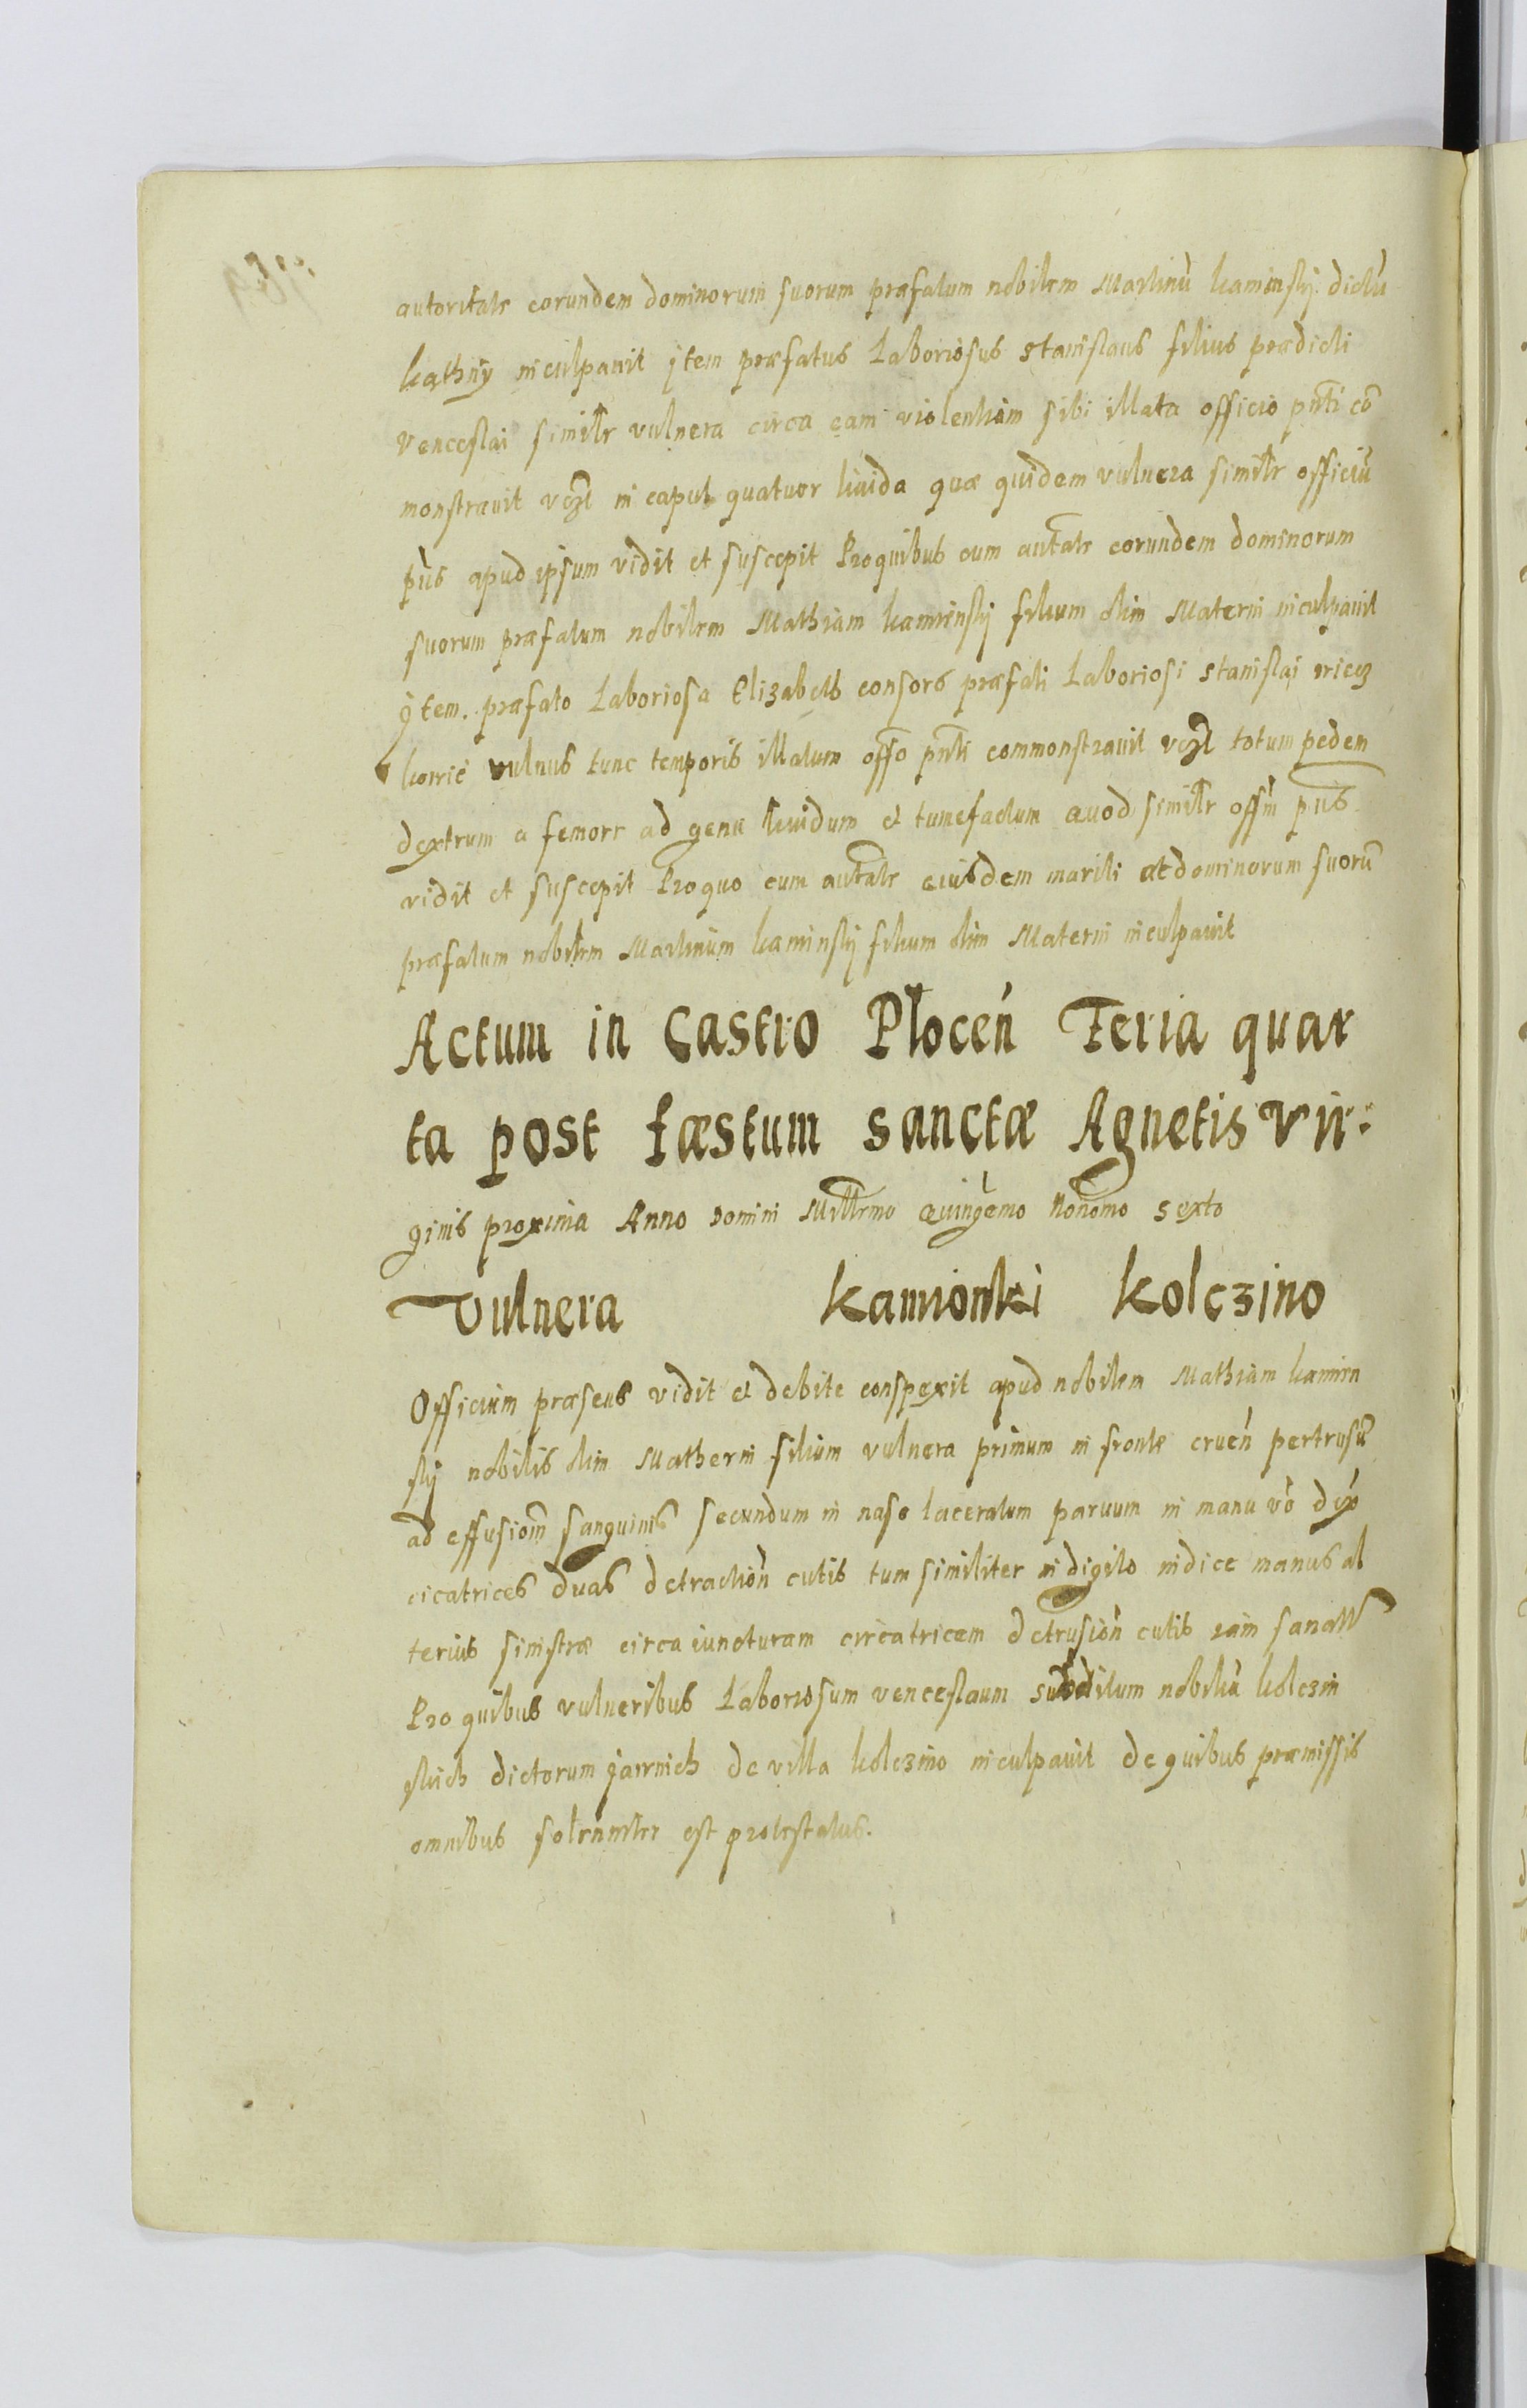 autoritate eorundem dominorum suorum præfatum nobilem Martinū kaminskÿ dictū
kathnÿ inculpauit ÿtem præfatus Laboriosus stanislaus filius prædicti
venceslai similr vulnera circa eam violentiam sibi illata officio pñti cō
monstrauit vczt in caput quatuor liuida quæ quidem vulnera similr officiū
pñs apud ipsum vidit et suscepit Pro quibus cum autate eorundem dominorum
suorum præfatum nobilem Mathiam kaminskÿ filium olim Materni inculpauit
ÿtem præfato Laboriosa Elizabeth consors præfati Laboriosi stanislai
vulnus tunc temporis illatum offo pñti commonstrauit vczt totum pedem
dextrum a femore ad genu liuidum et tumefactum quod similr offm pñs
vidit et suscepit Pro quo cum autate eiusdem mariti et dominorum suorū
præfatum nobilem Martinum kaminskÿ filium olim Materni inculpauit
Actum in Castro Plocen̄ Feria quar
ta post fæstum sanctæ Agnetis vir
ginis proxima Anno Domini Millemo quingemo Nonomo sexto
Vulnera kamionki kolczino
Officium præsens vidit et debite conspexit apud nobilem Mathiam kamien
skÿ nobilis olim Matherni filium vulnera primum in fronte cruen̄ pertrusū
ad effusiom̄ sanguinis secundum in naso laceratum paruum in manu vō dex
cicatrices duas detraction̄ cutis tum similiter in digito indice manus al
terius sinistræ circa iuncturam circatricem detrusion̄ cutis iam
Pro quibus vulneribus Laboriosum venceslaum subditum nobiliū kolczin
skich dictorum de villa kolczino inculpauit de quibus præmissis
omnibus solenniter est protestatus.